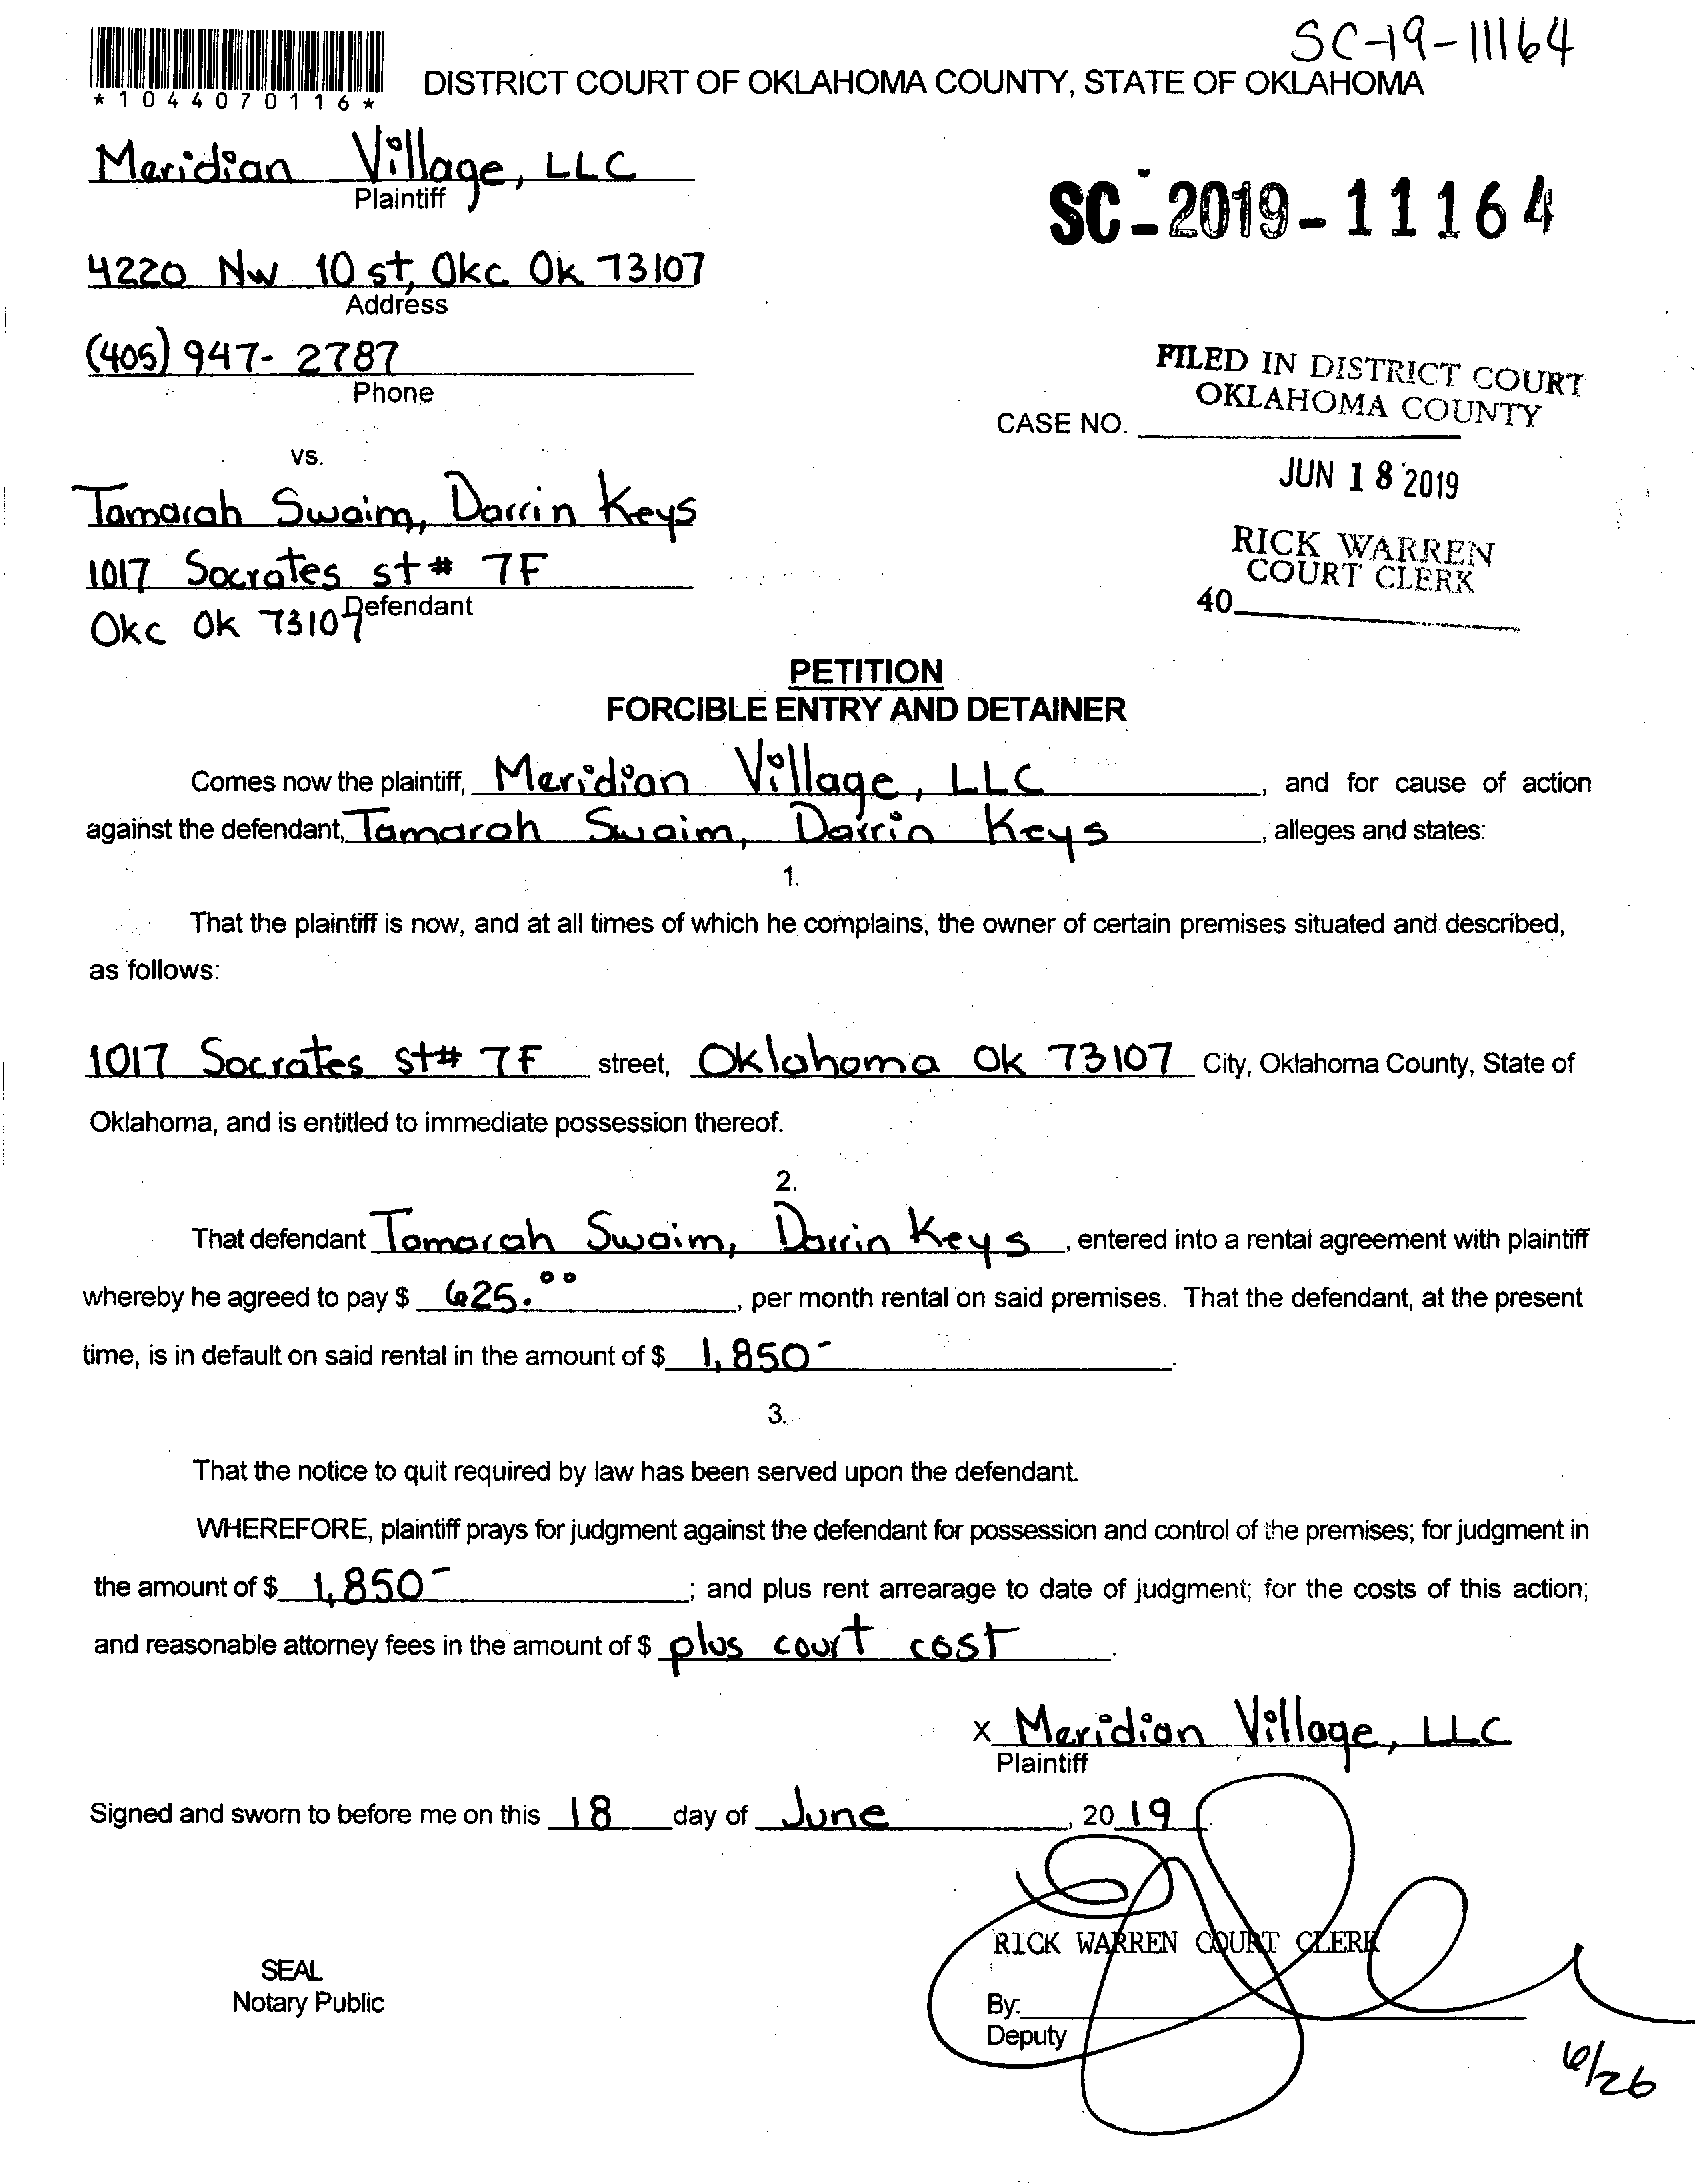 SC-19-11164
*1044070116*
DISTRICT COURT OF OKLAHOMA COUNTY, STATE OF OKLAHOMA
Meridian Village, LLC
Plaintiff
SC-2019-11164
4220 NW 10 st, Okc Ok 73107
Address
(405) 947-2787
Phone
FILED IN DISTRICT COURT
OKLAHOMA COUNTY
CASE NO.
vs.
JUN 18 2019
Tamarah Swaim, Darrin Keys
RICK WARREN
COURT CLERK
1017 Socrates st # 7F
40
Defendant
Okc Ok 73107
PETITION
FORCIBLE ENTRY AND DETAINER
Comes now the plaintiff, Meridian Village, LLC, and for cause of action
against the defendant, Tamarah Swaim, Darrin Keys, alleges and states:
1.
That the plaintiff is now, and at all times of which he complains, the owner of certain premises situated and described,
as follows:
1017 Socrates st# 7F street, Oklahoma Ok 73107 City, Oklahoma County, State of
Oklahoma, and is entitled to immediate possession thereof.
2.
That defendant Tamarah Swaim, Darrin Keys, entered into a rental agreement with plaintiff
whereby he agreed to pay $ 625.00, per month rental on said premises. That the defendant, at the present
time, is in default on said rental in the amount of $ 1,850-.
3.
That the notice to quit required by law has been served upon the defendant.
WHEREFORE, plaintiff prays for judgment against the defendant for possession and control of the premises; for judgment in
the amount of $ 1,850-; and plus rent arrearage to date of judgment; for the costs of this action;
and reasonable attorney fees in the amount of $ plus court cost.
x Meridian Village, LLC
Plaintiff
Signed and sworn to before me on this 18 day of June, 20 19.
RICK WARREN COURT CLERK
SEAL
Notary Public
By:
Deputy
6/26